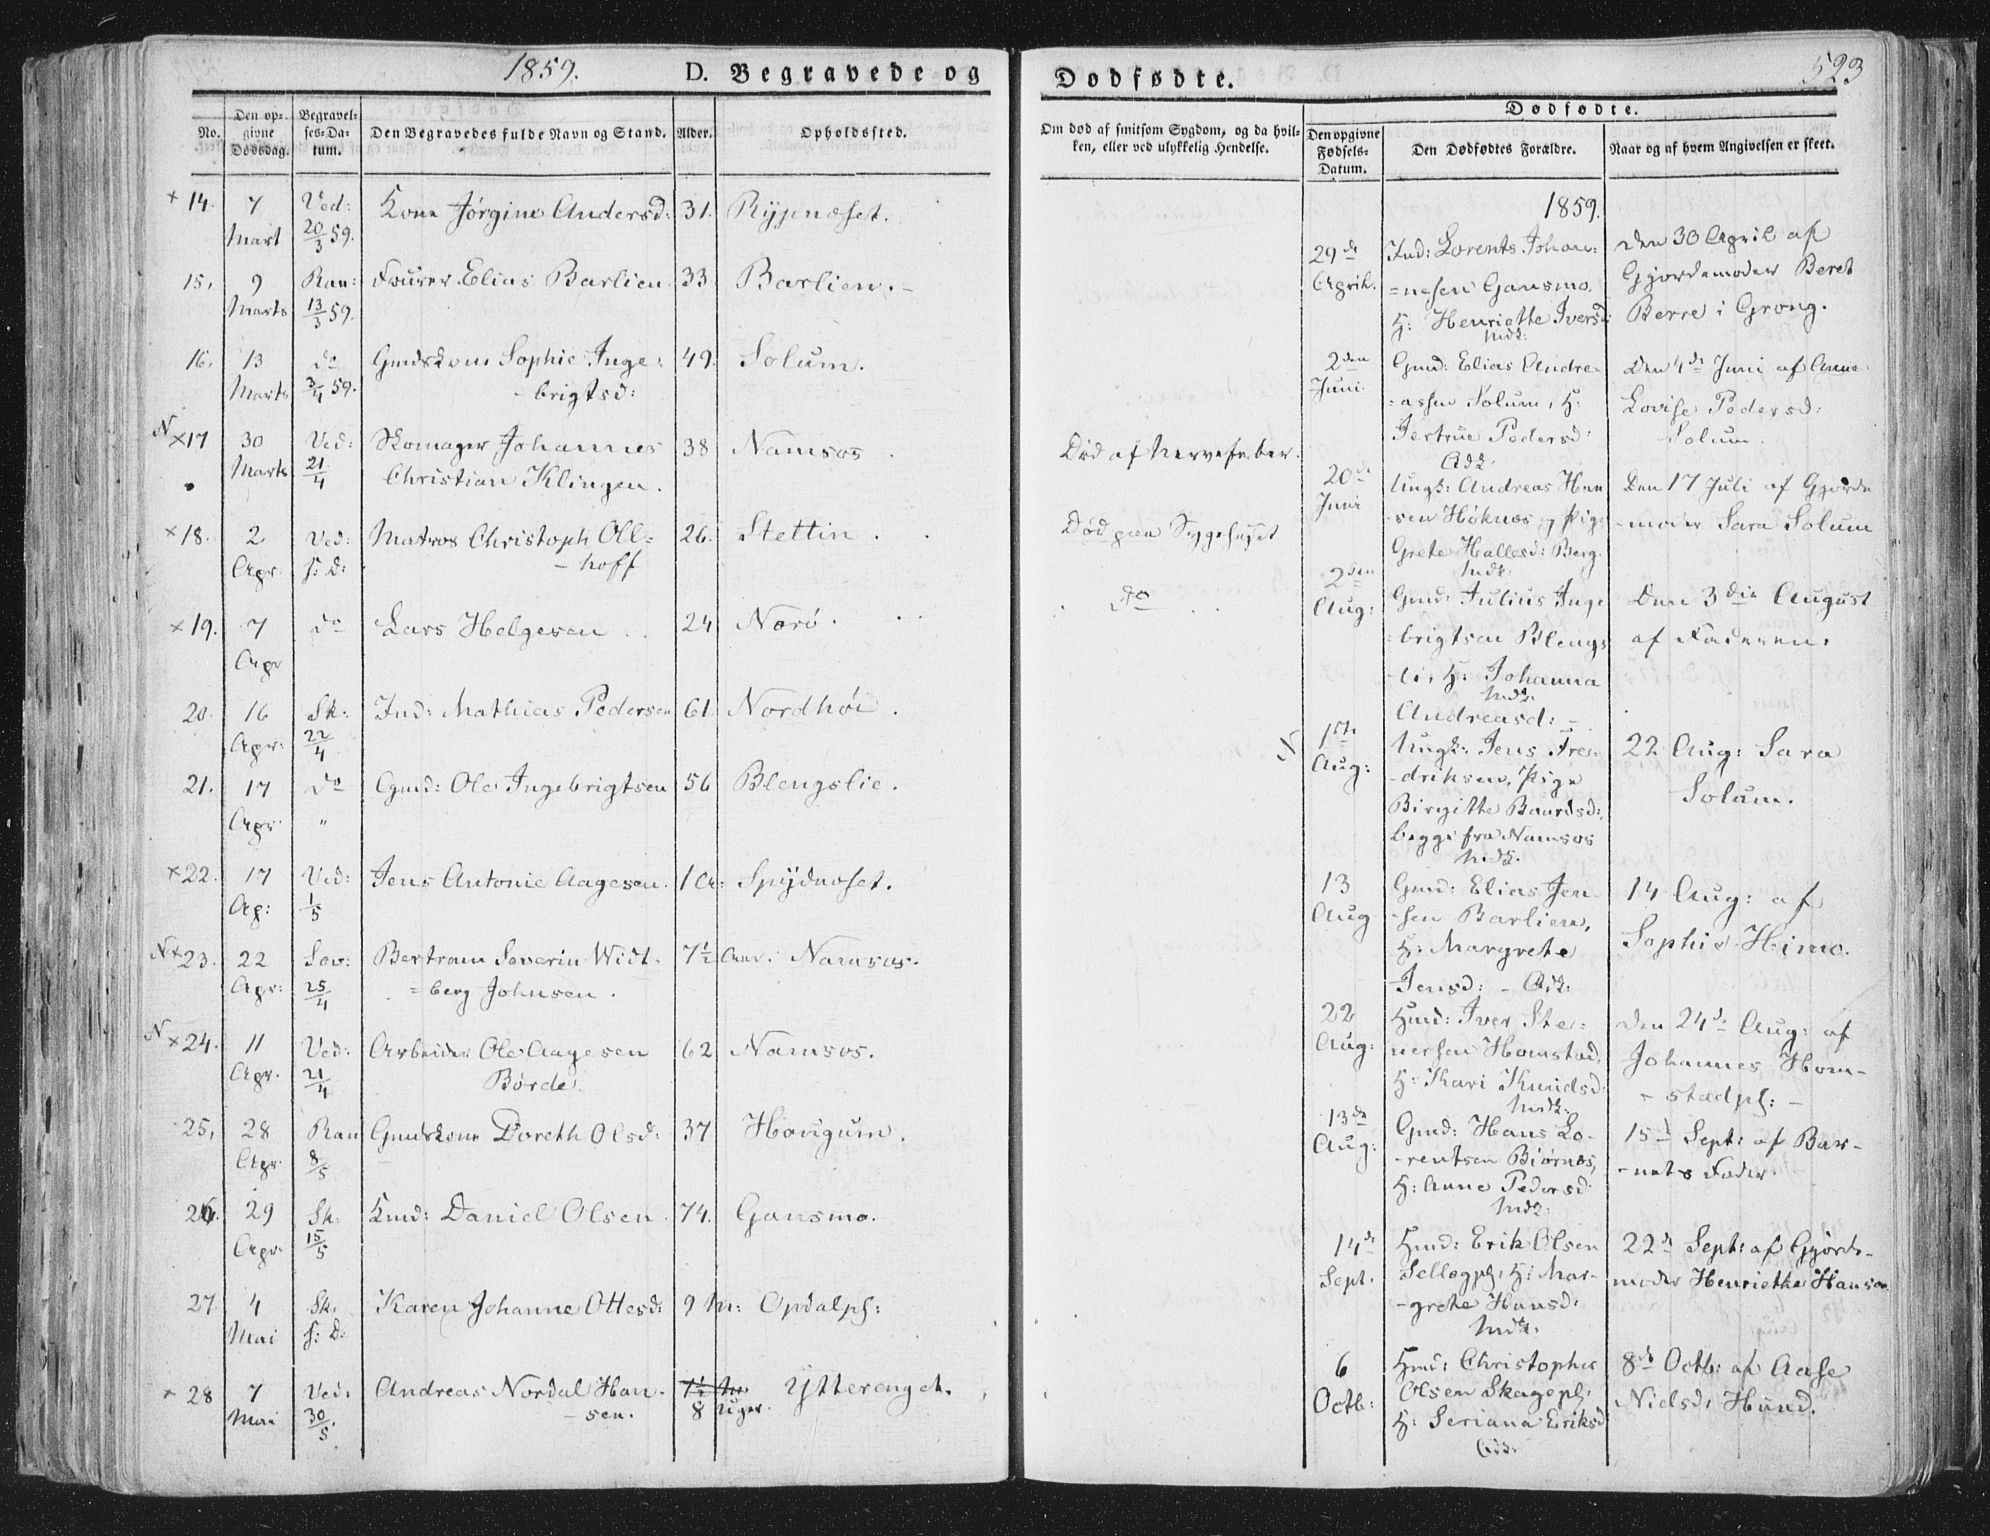 1859. D. Begravede og
No.
Den op-
givne
Dødsdag.
Begravel-
ses-Da-
tum.
Den Begravedes fulde Navn og Stand.
Alder.
Opholdssted.
+ 14. 7 Ved: Kone Jørgine Andersd: 31. Rypnæset.
Mart 20/3 59.
15, 9 Ran: Fourer Elias Barlien 33 Barlien.-
Marts 13/3 59.
16, 13 do Gmdskone Sophie Inge: 49. Solum.
Marts 3/4 59. -brigtsd:
N x17 30 Ved: Skomager Johannes 38 Namsos.
Marts 21/4 Christian Klingen.
x18. 2 Ved: Matros Christoph Oll= 26. Stettin.
Apr: s: D: -hoff
x19. 7 do Lars Helgesen 24 Nærö.
Apr
20. 16 Sk: Ind: Mathias Pedersen 61 Nordhöi.
Apr: 22/4
21. 17 do Gmd: Ole Ingebrigtsen 56 Blengslie.
Apr "
x22. 17 Ved: Jens Antonie Aagesen. 1 A: Spydnæset.
Ap: 1/5
N x23. 22 Sæv: Bertram Severin Widt- 7½ Aar. Namsos.
Apr: 25/4 =berg Johnsen.
N x24. 11 Ved: Arbeider Ole Aagesen 62 Namsos.
Apr. 21/4 Börde.
25, 28 Ran Gmdskone Doreth Olsd: 37 Haugum.
Apr 8/5
26. 29 Sk: Kmd: Daniel Olsen 74. Gansmo.
Apr. 15/5
27 4 Sk: Karen Johanne Ottesd: 9 M: Opdalpl:
Mai s: D:
+ 28 7 Ved: Andreas Nordal Han- Ytterenget.
Mai 30/5 -sen. 8 Uger.
Dødfødte. 523
Om død af smitsom Sygdom, og da hvil-
ken, eller ved ulykkelig Hendelse.
Dødfødte.
Den opgivne
Fødsels-
Datum.
Den Dødfødtes Forældre.
Naar og af hvem Angivelsen er skeet.
Død af Nervefeber.
Død paa Sygehuset
do
1859.
29de Ind: Lorents Johan: Den 30 April af
April. =nesen Gansmo, Gjordemoder Beret
H: Henriette Iversd: Berre i Grong.
2den Gmd: Elias Andre- Den 4de Juni af Anne
Juni =assen Solum, H: Lovise Pedersd:
Jertrue Pedersd: Solum.
20de Ungk: Andreas Han Den 17 Juli af Gjorde
Juni -sen Höknæs, Pig: -moder Sara Solum
Grete Hallesd: Berg.
2den Gmd: Julius Inge Den 3die August
Aug: =brigtsen Blengs af Faderen.
-li, H: Johanna
Andreasd: -
N Ungk: Jens Fre- 22 Aug: Sara
Aug: -driksen, Pige Solum.
Birgitte Baardsd:
begge fra Namsos
13 Gmd: Elias Jen- 14 Aug: af
Aug -sen Barlien, Sophie Himo.
H: Margrete
Jensd: -
22 Hmd: Iver Ste: Den 24de Aug: af
Aug: nersen Homstad, Johannes Hom-
H: Kari Knudsd: -stadpl: -
13de Gmd: Hans Lo- 15de Sept: af Bar-
Aug: -rentsen Biörnæs, -nets Fader.
H: Anne Pedersd:
14de Hmd: Erik Olsen 22de Sept: af Gjorde-
Sept. Sellægpl, H: Mar- moder Henriethe Hansen
-grete Hansd:
6 Hmd: Christopher 8de Octb: af Aase
Octb: Olsen Skagepl: Nielsd: Hund.
H: Seriana Eriksd